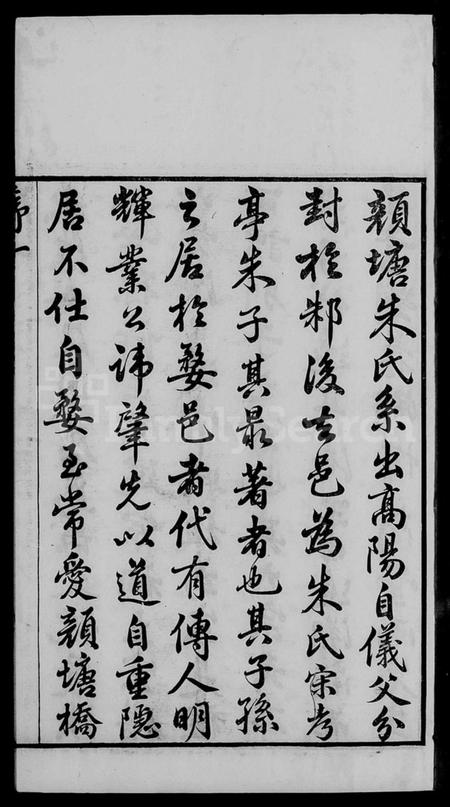 顏塘朱氏系出高陽自儀父分
封於邾後去邑為朱氏宋考
亭朱子其最著者也其子孫
之居於婺邑者代有傳人明
輝業公諱肇先以道自重隱
居不仕自婺至常愛顏塘橋
序一
FamilySearch